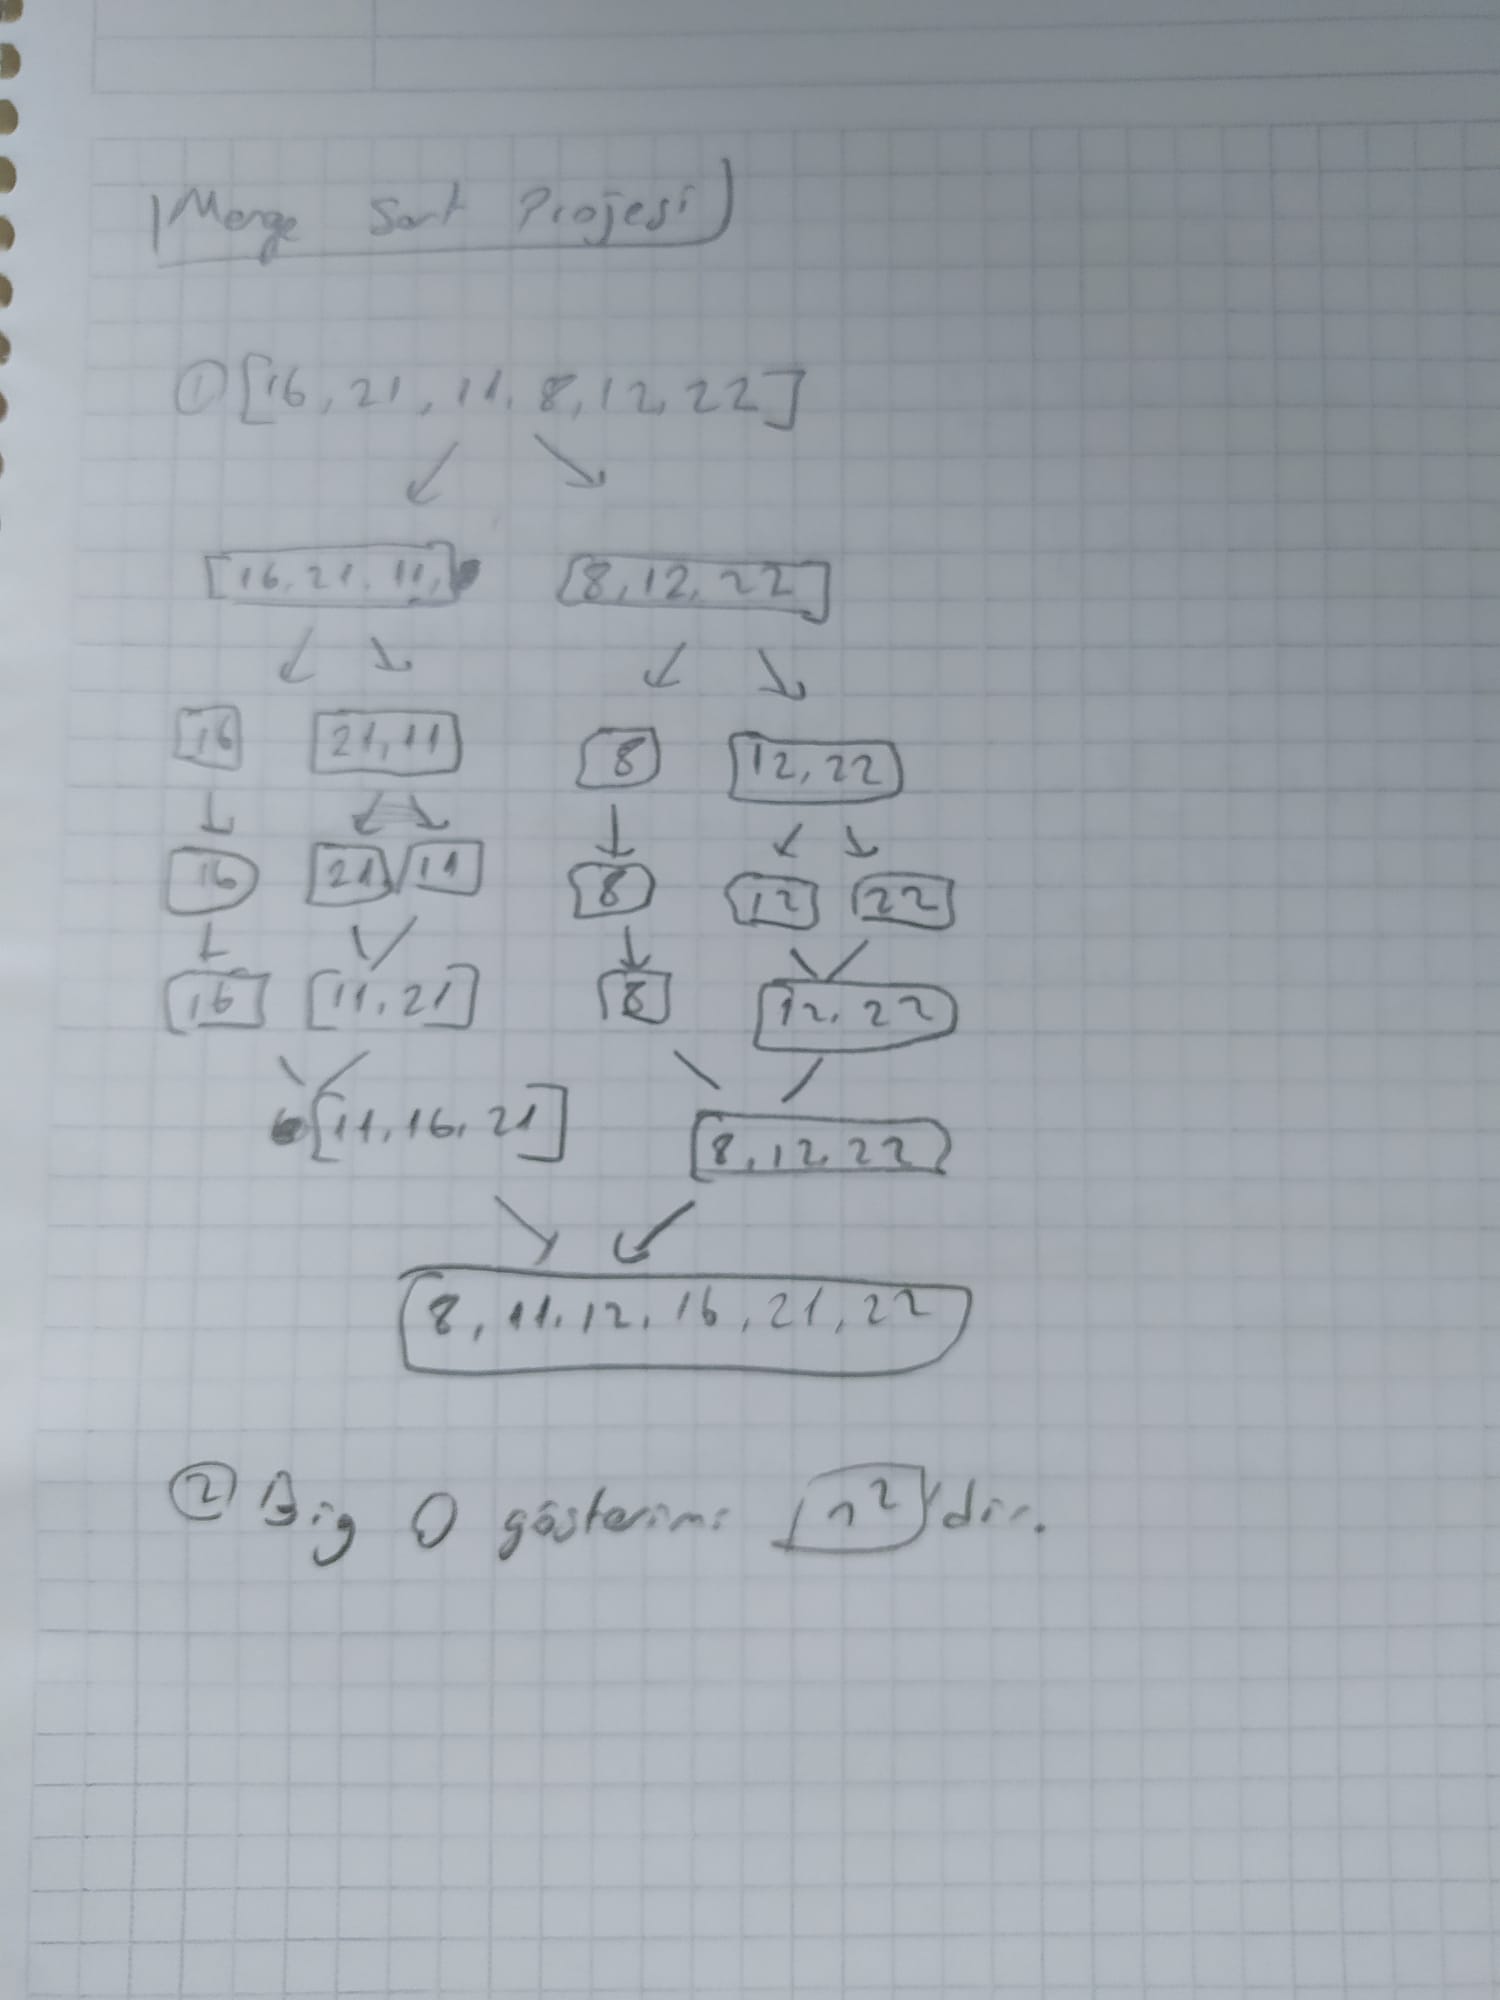 Merge Sort Projesi
① [16, 21, 11, 8, 12, 22]
[16, 21, 11, [8, 12, 22]
16 21, 11 8 12, 22
16 21 11 8 12 22
16 [11, 21] 8 12, 22
[11, 16, 21] 8, 12, 22
8, 11, 12, 16, 21, 22
② Big O gösterimi n²'dir.